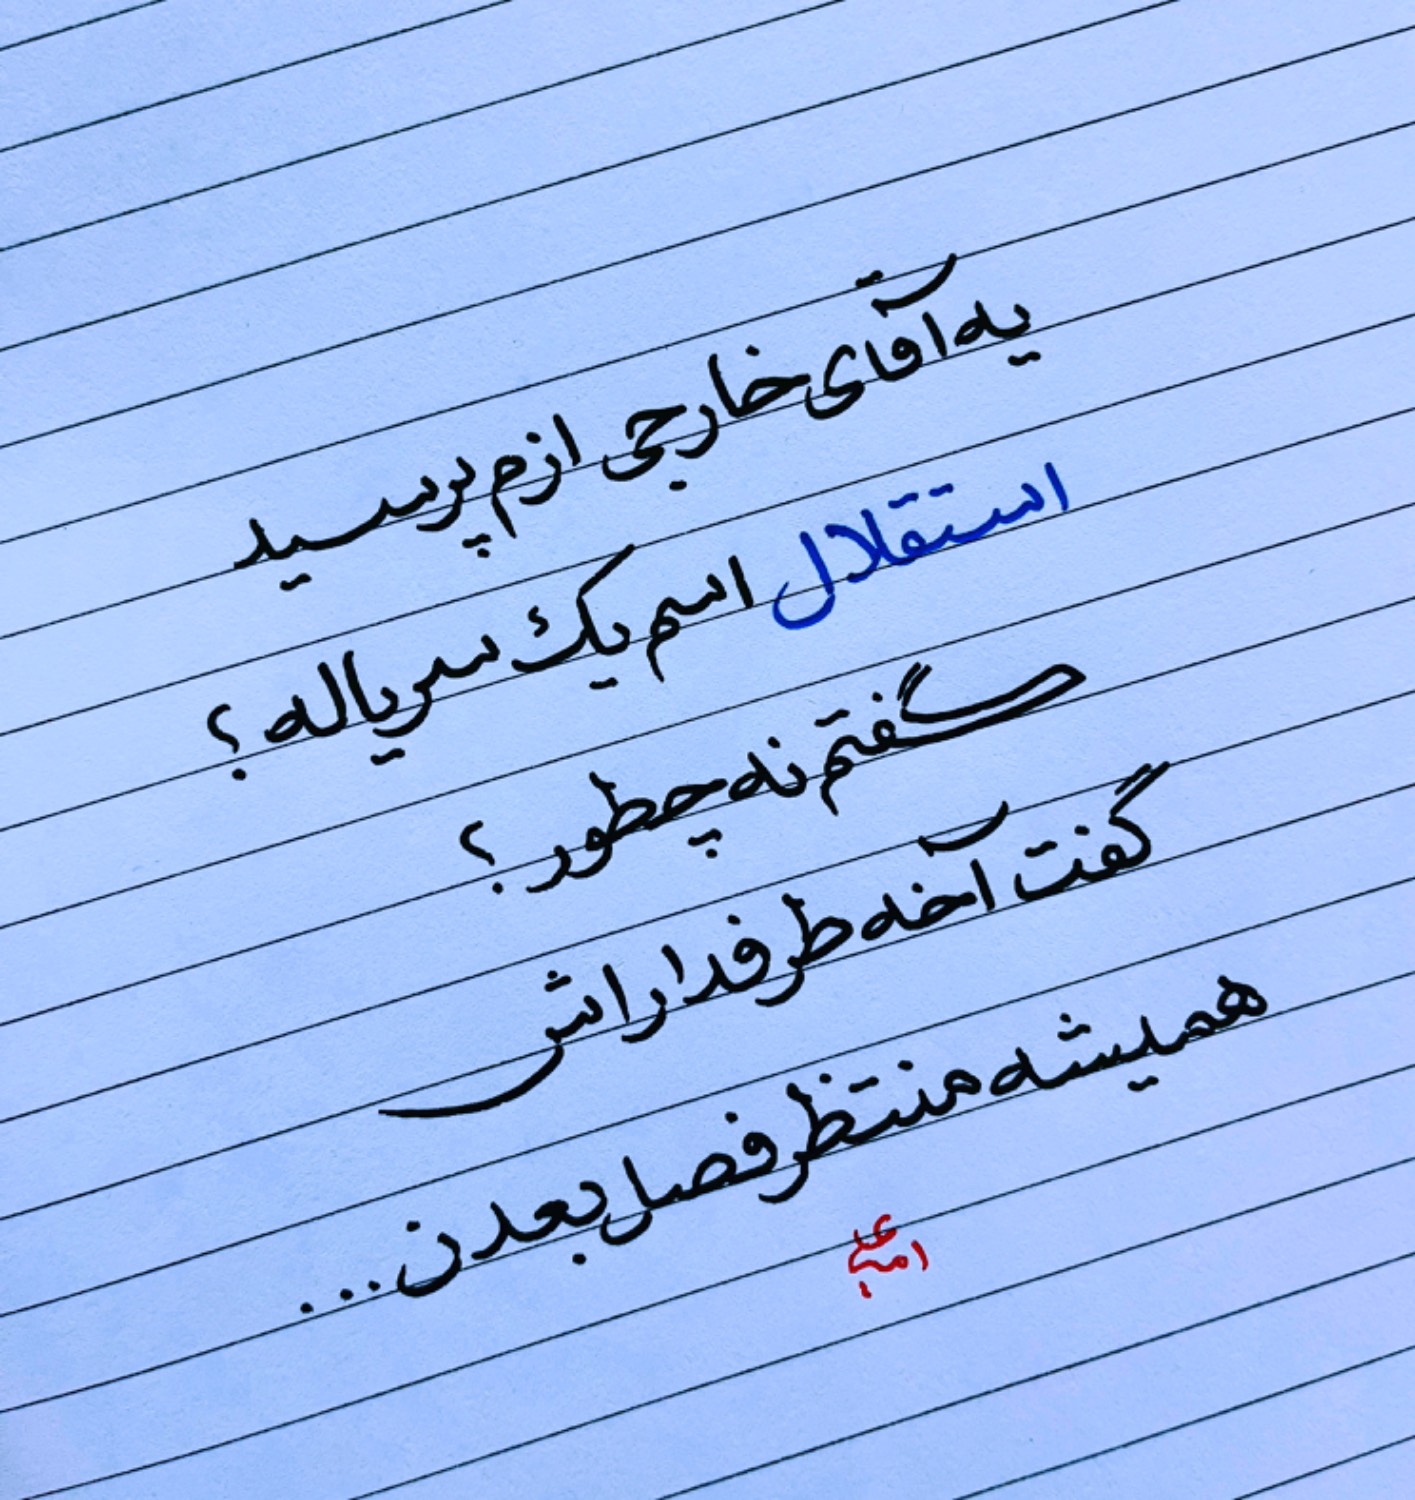 یه آقای خارجی ازم پرسید
استقلال اسم یک سریاله ؟
گفتم نه چطور ؟
گفت آخه طرفداراش
همیشه منتظر فصل بعدن ...
امیرعلی